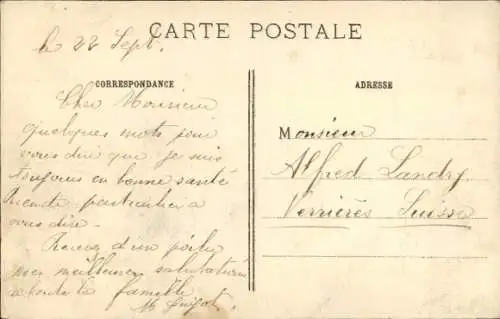 CARTE POSTALE
le 22 Sept.
CORRESPONDANCE
ADRESSE
Cher Monsieur
quelques mots pour
vous dire que je suis
toujours en bonne santé
Rien de particulier a
vous dire -
Recevez d'un poilu
mes meilleures salutations
a toute la famille
Monsieur
Alfred Landry
Verrières Suisse